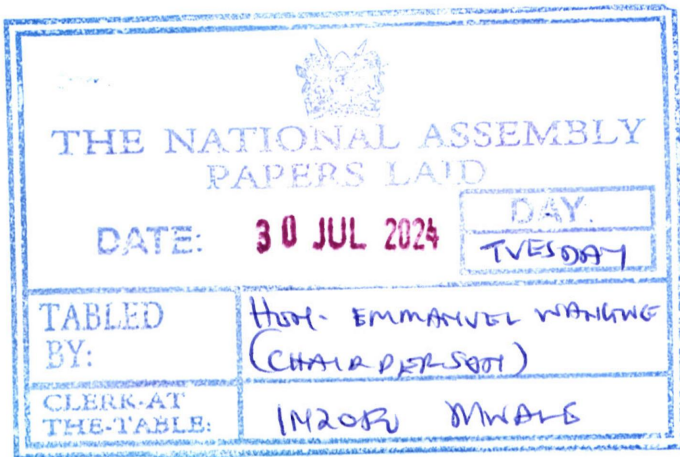 THE NATIONAL ASSEMBLY
PAPERS LAID
DATE: 30 JUL 2024
DAY.
TUESDAY
TABLED BY:
HON. EMMANUEL WANGWE
(CHAIRPERSON)
CLERK-AT THE-TABLE:
INZOFU MWALE